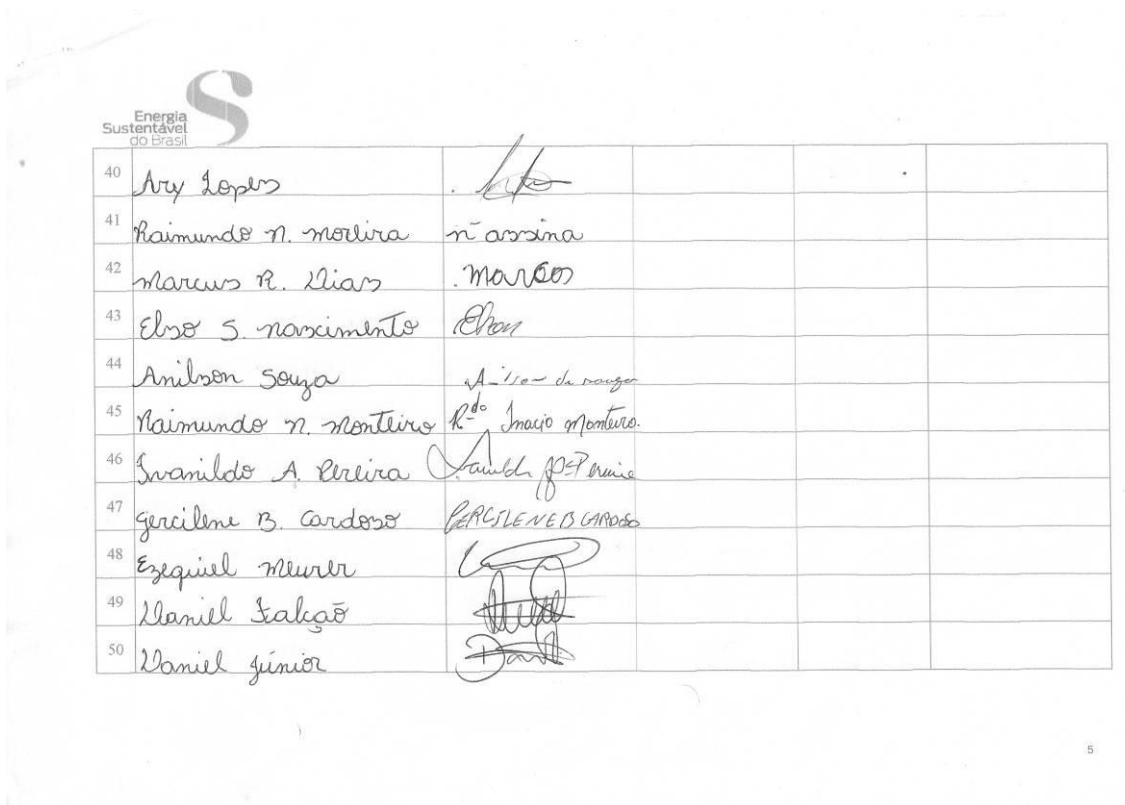 Energia
Sustentável
do Brasil
40 Ary Lopes
41 Raimundo n. moreira nª assina
42 marcus R. Dias . marcos
43 Elso S. nascimento Elson
44 Anilson Souza de souza
45 Raimundo n. Monteiro R.do Inacio Monteiro.
46 Ivanildo A. Pereira
47 Gercilene B. Cardoso GERCILENE B CARDOSO
48 Ezequiel Meurer
49 Daniel Falcão
50 Daniel Júnior
5